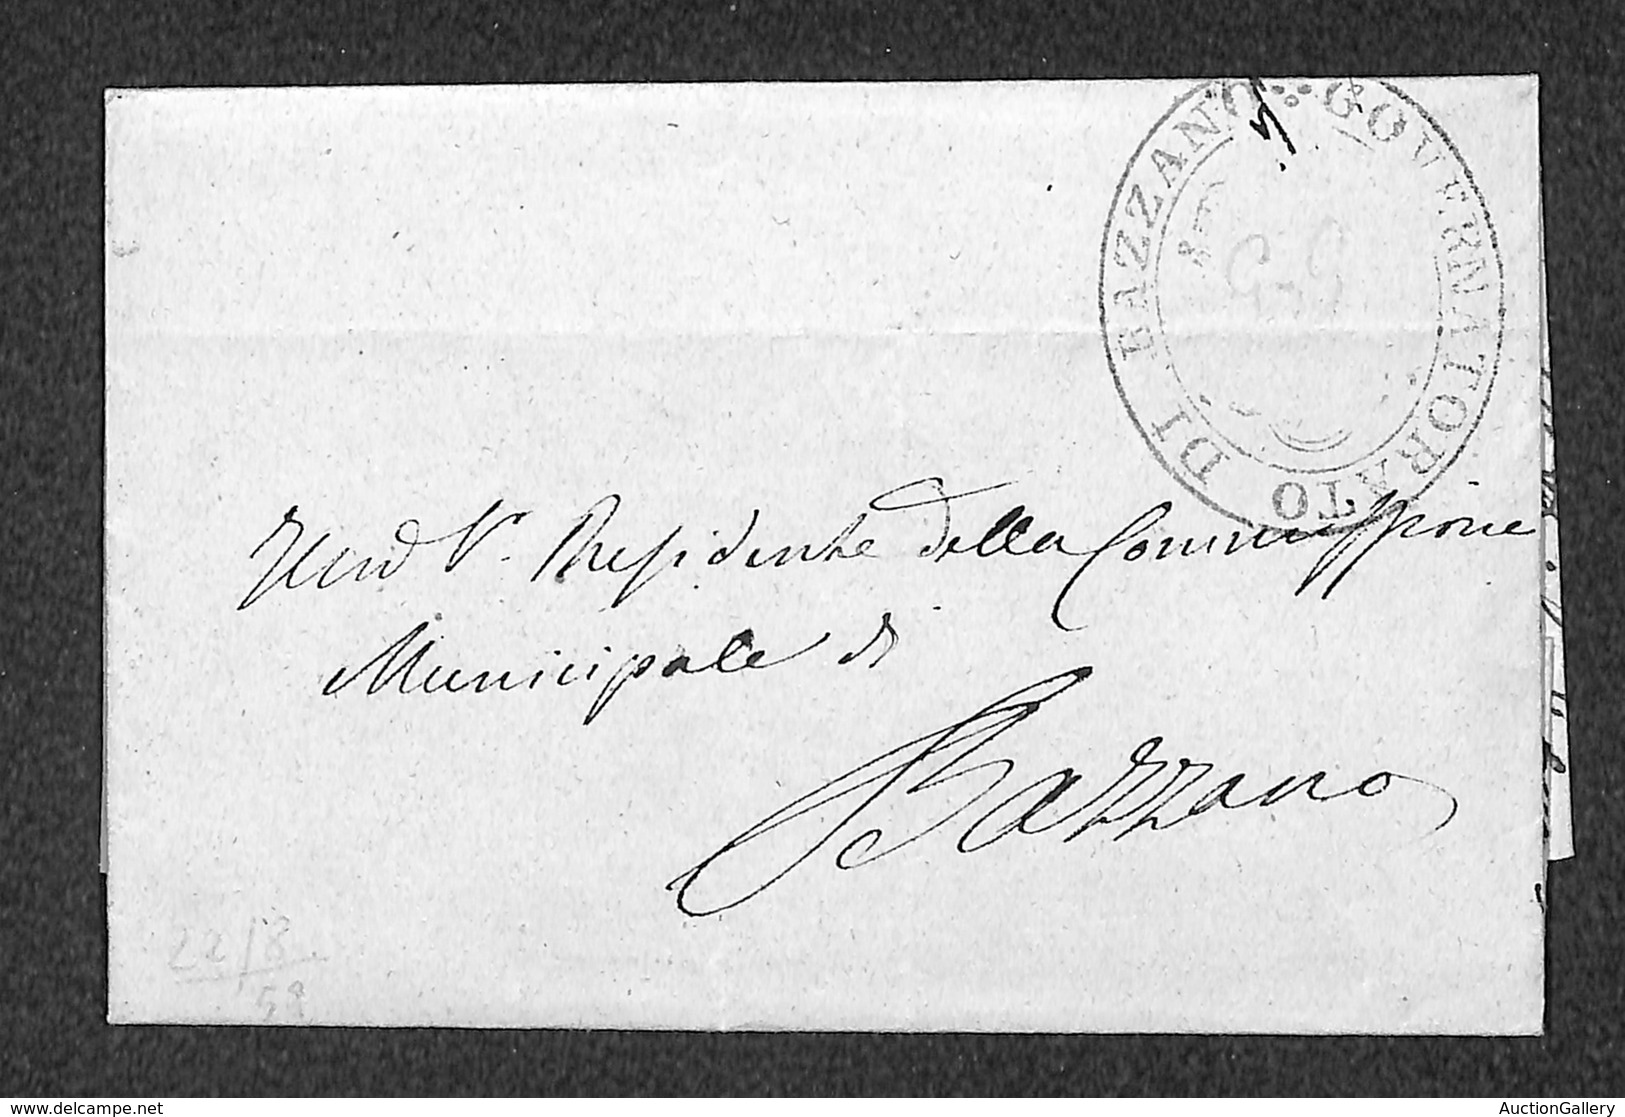 GOVERNATORATO DI BAZZANO
G G
Presidente della Commissione
Municipale di
Bazzano
22/8
59
delcampe.net
AuctionGallery